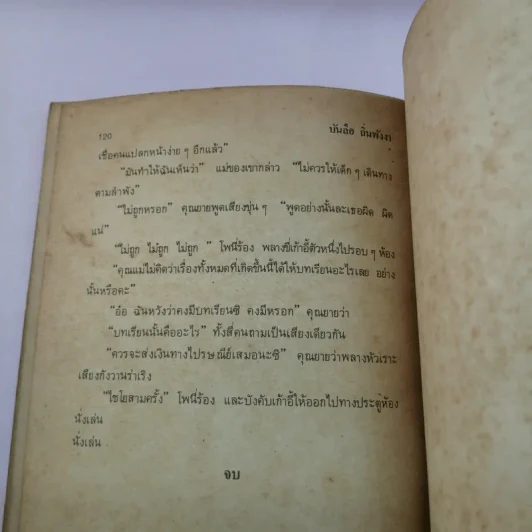 120
บันลือ ถิ่นพังงา
เชื่อคนแปลกหน้าง่าย ๆ อีกแล้ว”
“มันทำให้ฉันเห็นว่า” แม่ของเขากล่าว “ไม่ควรให้เด็ก ๆ เดินทาง
ตามลำพัง”
“ไม่ถูกหรอก” คุณยายพูดเสียงขุ่น ๆ “พูดอย่างนั้นละเธอผิด ผิด
แน่”
“ไม่ถูก ไม่ถูก ไม่ถูก ” โพนี่ร้อง พลางขี่เก้าอี้ตัวหนึ่งไปรอบ ๆ ห้อง
“คุณแม่ไม่คิดว่าเรื่องทั้งหมดที่เกิดขึ้นนี้ได้ให้บทเรียนอะไรเลย อย่าง
นั้นหรือคะ”
“อ๋อ ฉันหวังว่าคงมีบทเรียนซิ คงมีหรอก” คุณยายว่า
“บทเรียนนั้นคืออะไร” ทั้งสี่คนถามเป็นเสียงเดียวกัน
“ควรจะส่งเงินทางไปรษณีย์เสมอนะซิ” คุณยายว่าพลางหัวเราะ
เสียงกังวานร่าเริง
“ไชโยสามครั้ง” โพนี่ร้อง และบังคับเก้าอี้ให้ออกไปทางประตูห้อง
นั่งเล่น
นั่งเล่น
จบ